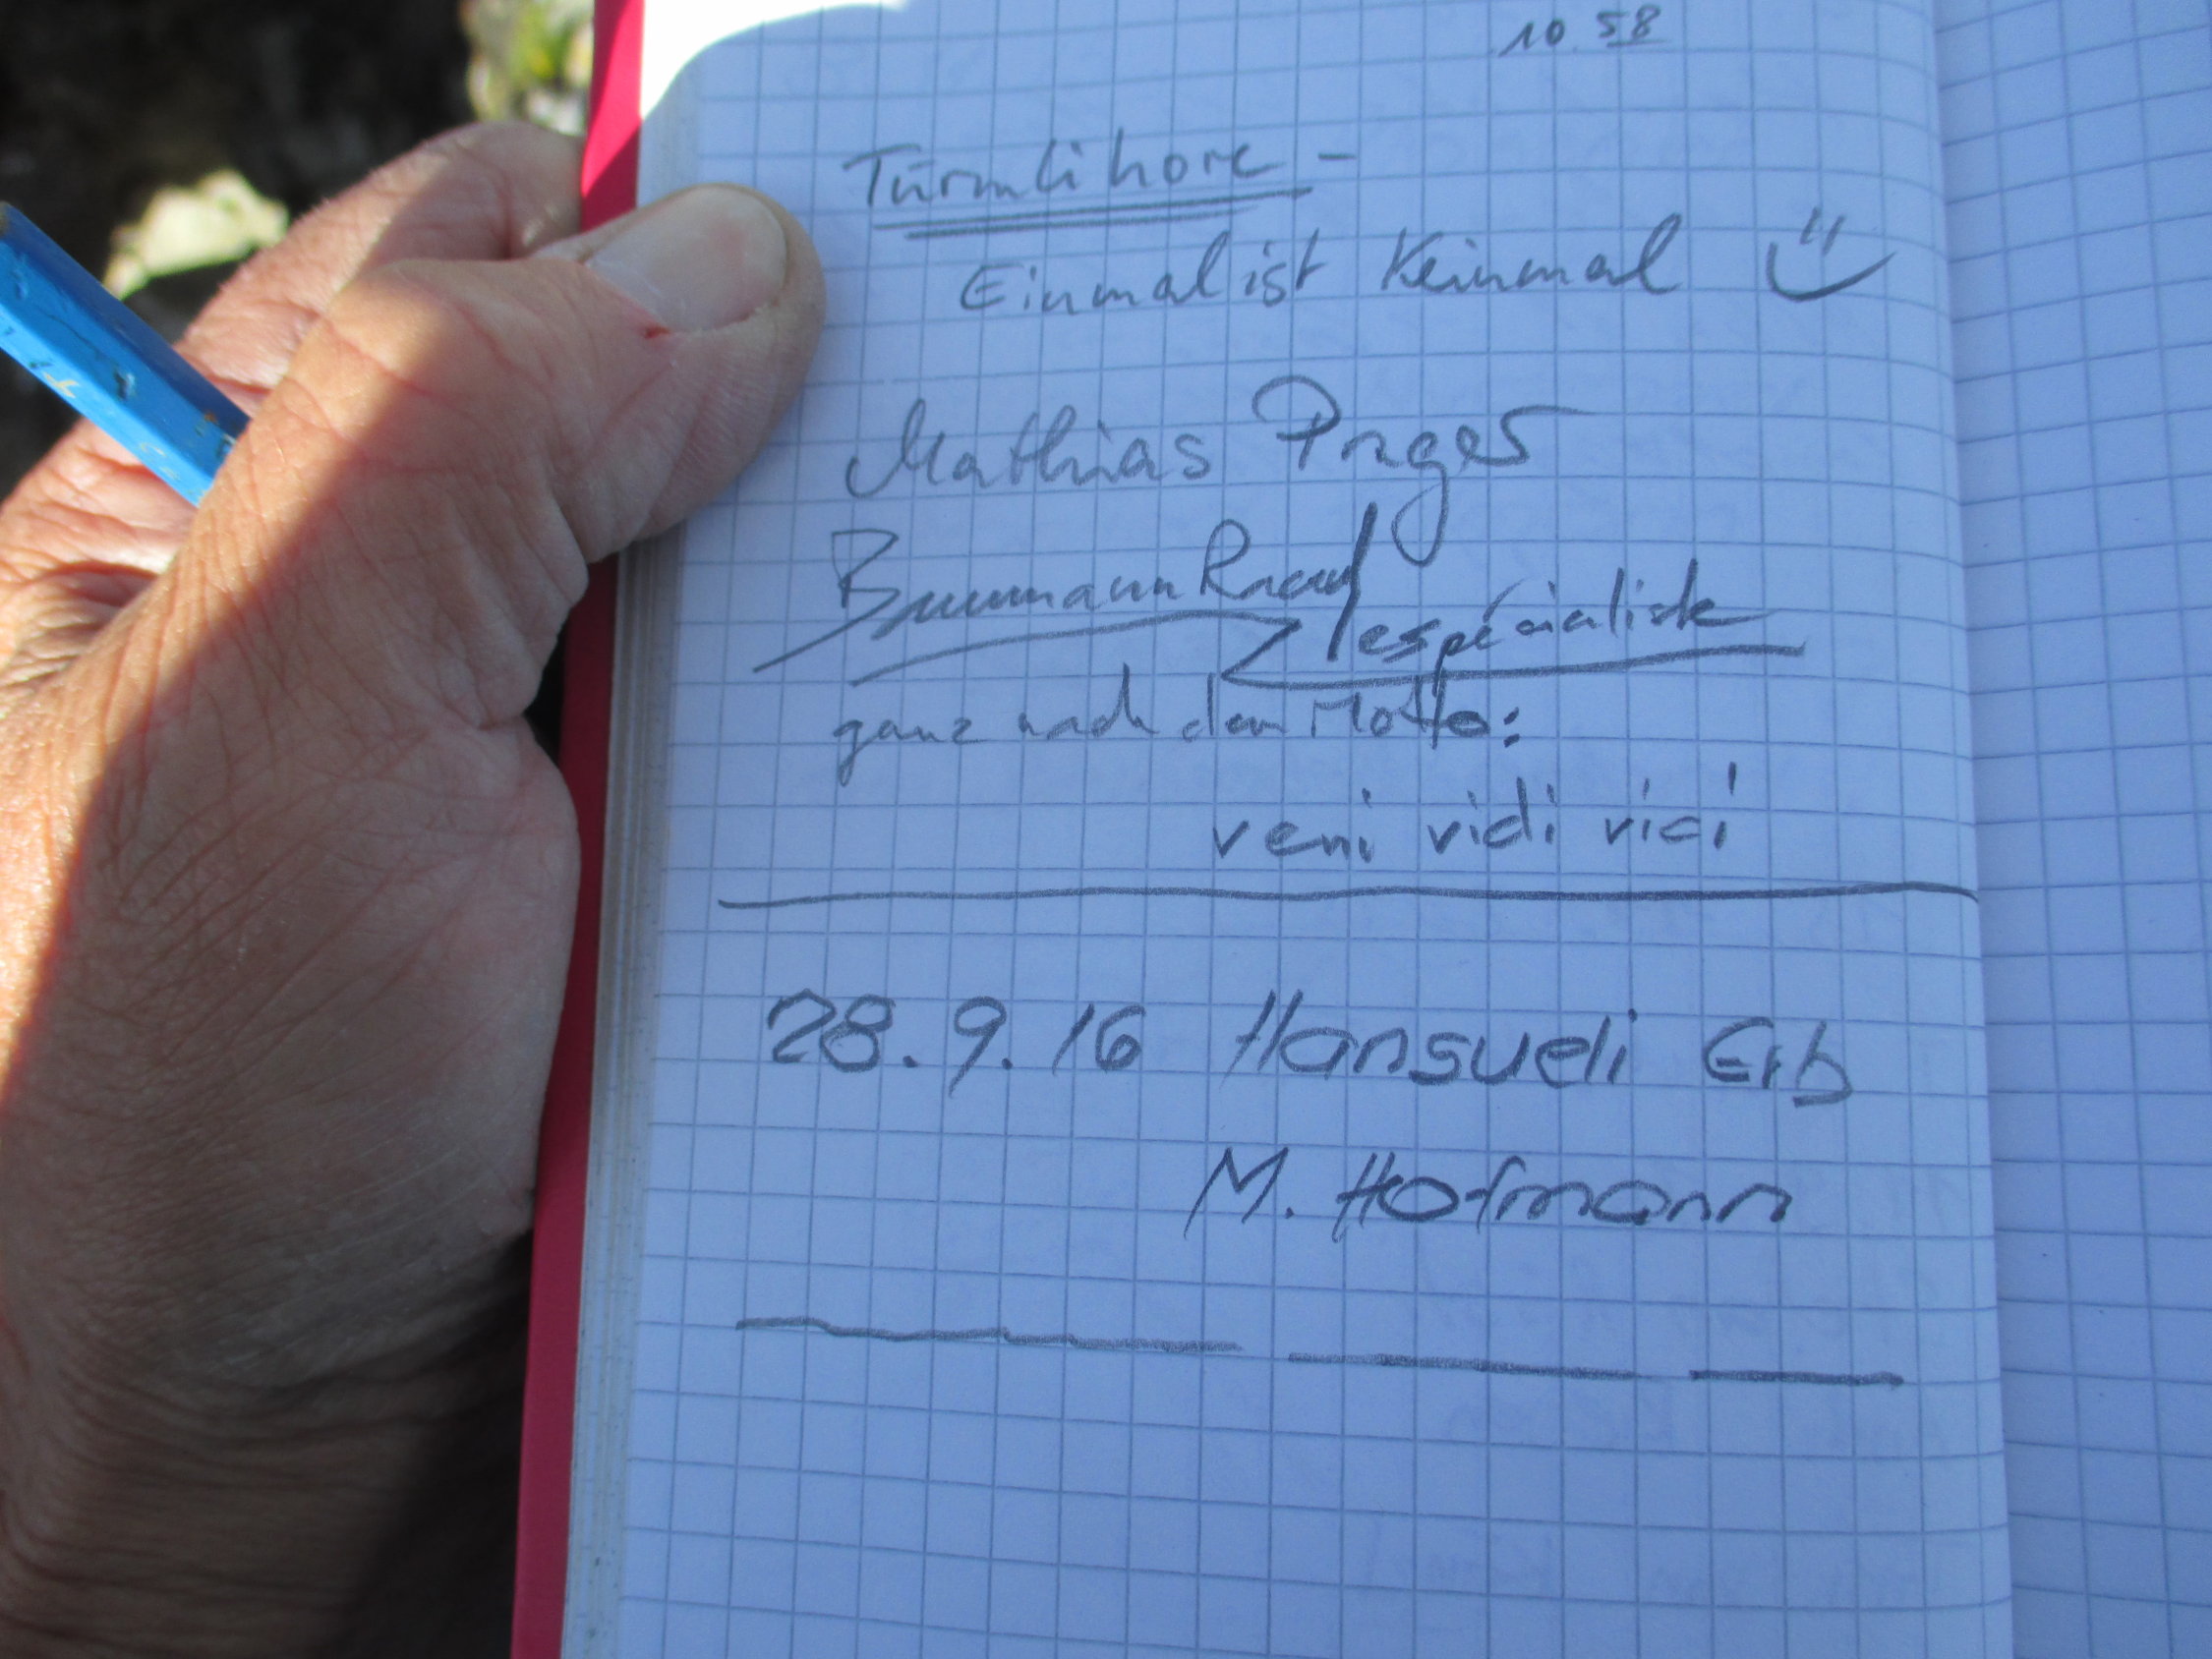 10.58
Türmlihore -
Einmal ist Keinmal
Mathias
ganz nach dem Motto:
veni vidi vici
28.9.16 Hansueli Erb
M. Hofmann